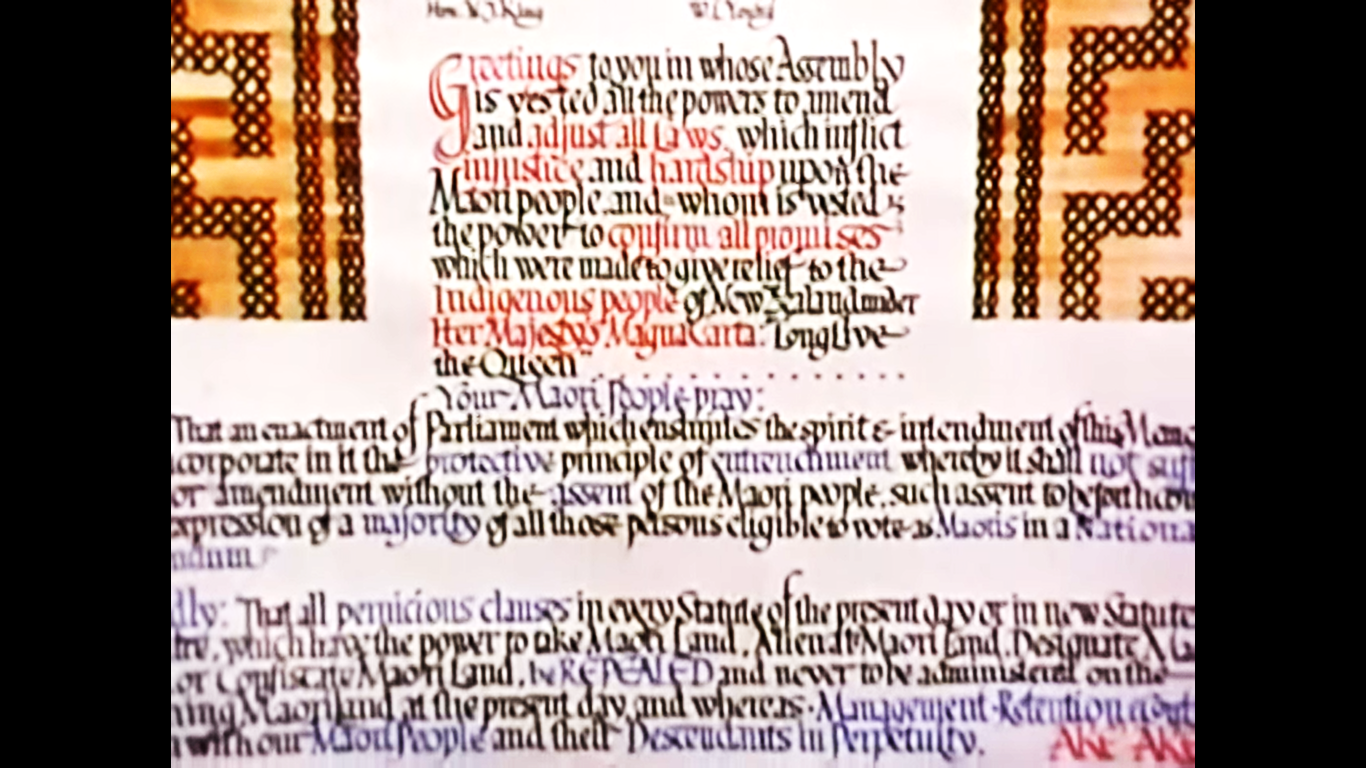 Greetings to you in whose Assembly
is vested all the powers to amend
and adjust all Laws, which inflict
injustice and hardship upon the
Maori people, and whom is vested
the power to confirm all promises
which were made to give relief to the
Indigenous people of New Zealand under
Her Majestys Magna Carta. Long Live
the Queen"
Your Maori People pray:
That an enactment of Parliament which enshrines the spirit & intendment of this
corporate in it the protective principle of entrenchment whereby it shall not
or amendment without the assent of the Maori people, such assent to be
xpression of a majority of all those persons eligible to vote as Maoris in a Nationa
ndum
dly: That all pernicious clauses in every Statute of the present day or in new Statute
which have the power to take Maori Land, Alienate Maori Land, Designate
or Confiscate Maori Land, be REPEALED and never to be administered on the
ning Maoriland at the present day, and whereas Management Retention
with our Maori People and their Descendants in Perpetuity. AKE AKE